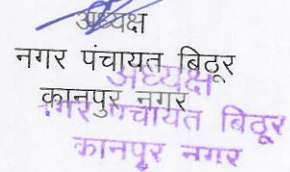 अध्यक्ष
नगर पंचायत बिठूर
कानपुर नगर
अध्यक्ष
नगर पंचायत बिठूर
कानपुर नगर